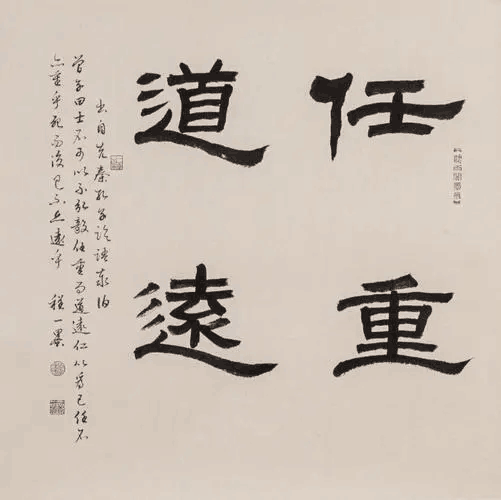 任重
道遠
出自先秦孔子論語泰伯
曾子曰士不可以不弘毅任重而道遠仁以為己任不
亦重乎死而後已不亦遠乎 程一墨